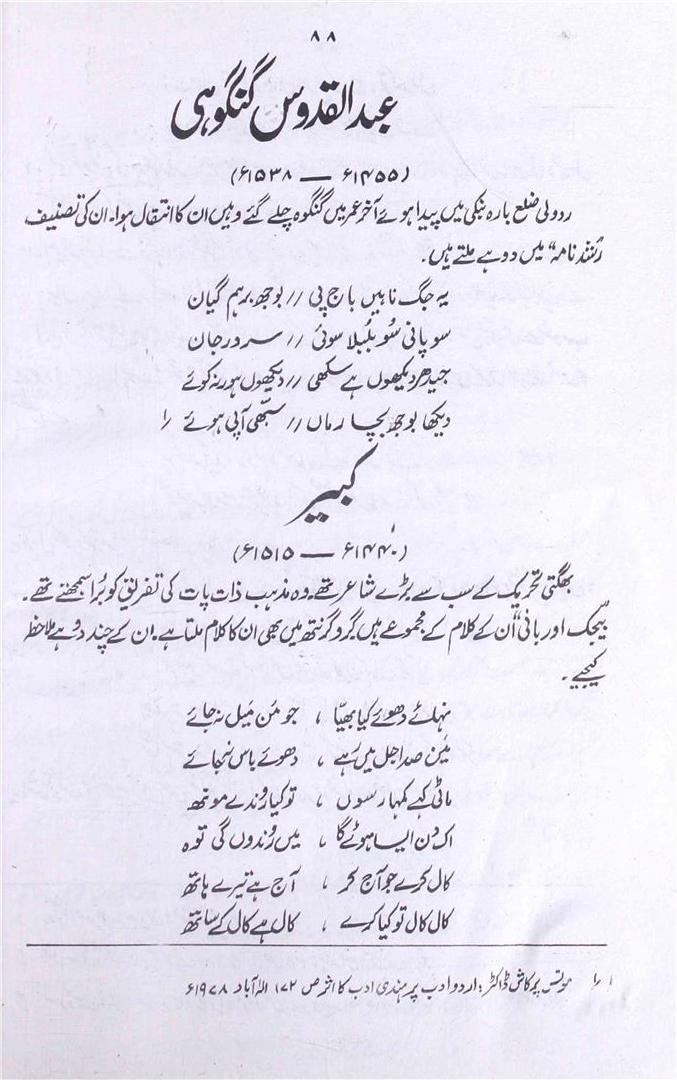 ۸۸
عبدالقدوس گنگوہی
(۱۴۵۵ء — ۱۵۳۸ء)
ردولی ضلع بارہ بنکی میں پیدا ہوئے آخر عمر میں گنگوہ چلے گئے وہیں ان کا انتقال ہوا۔ ان کی تصنیف
رُشد نامہ" میں دوہے ملتے ہیں۔
یہ جگ ناہیں باج پی // بوجھ برہم گیان
سو پانی سُو بلبلا سوئی // سرور جان
جیدھر دیکھوں ہے سکھی // دیکھوں ہور نہ کوئے
دیکھا بوجھ بچار ماں // سبھی آپی ہوئے ۱؎
کبیر
(۱۴۴۰ء — ۱۵۱۵ء)
بھگتی تحریک کے سب سے بڑے شاعر تھے۔ وہ مذہب ذات پات کی تفریق کو بُرا سمجھتے تھے۔
بیجک اور بانی اُن کے کلام کے مجموعے ہیں گرو گرنتھ میں بھی ان کا کلام ملتا ہے۔ ان کے چند دوہے ملاحظ
کیجیے۔
نہلئے دھوئے کیا بھیّا ، جو من میل نہ جائے
مین صدا جل میں رہے ، دھوئے باس نجائے
ماٹی کہے کمہار سوں ، تو کیا رُوندے موئھ
اک دن ایسا ہوئے گا ، میں رُوندوں گی توہ
کال کرے جو آج کر ، آج ہے تیرے ہاتھ
کال کال تو کیا کرے ، کال ہے کال کے ساتھ
۱؎ مونس پرکاش ڈاکٹر: اردو ادب پر ہندی ادب کا اثر ص ۱۷۲ الہ آباد ۱۹۷۸ء